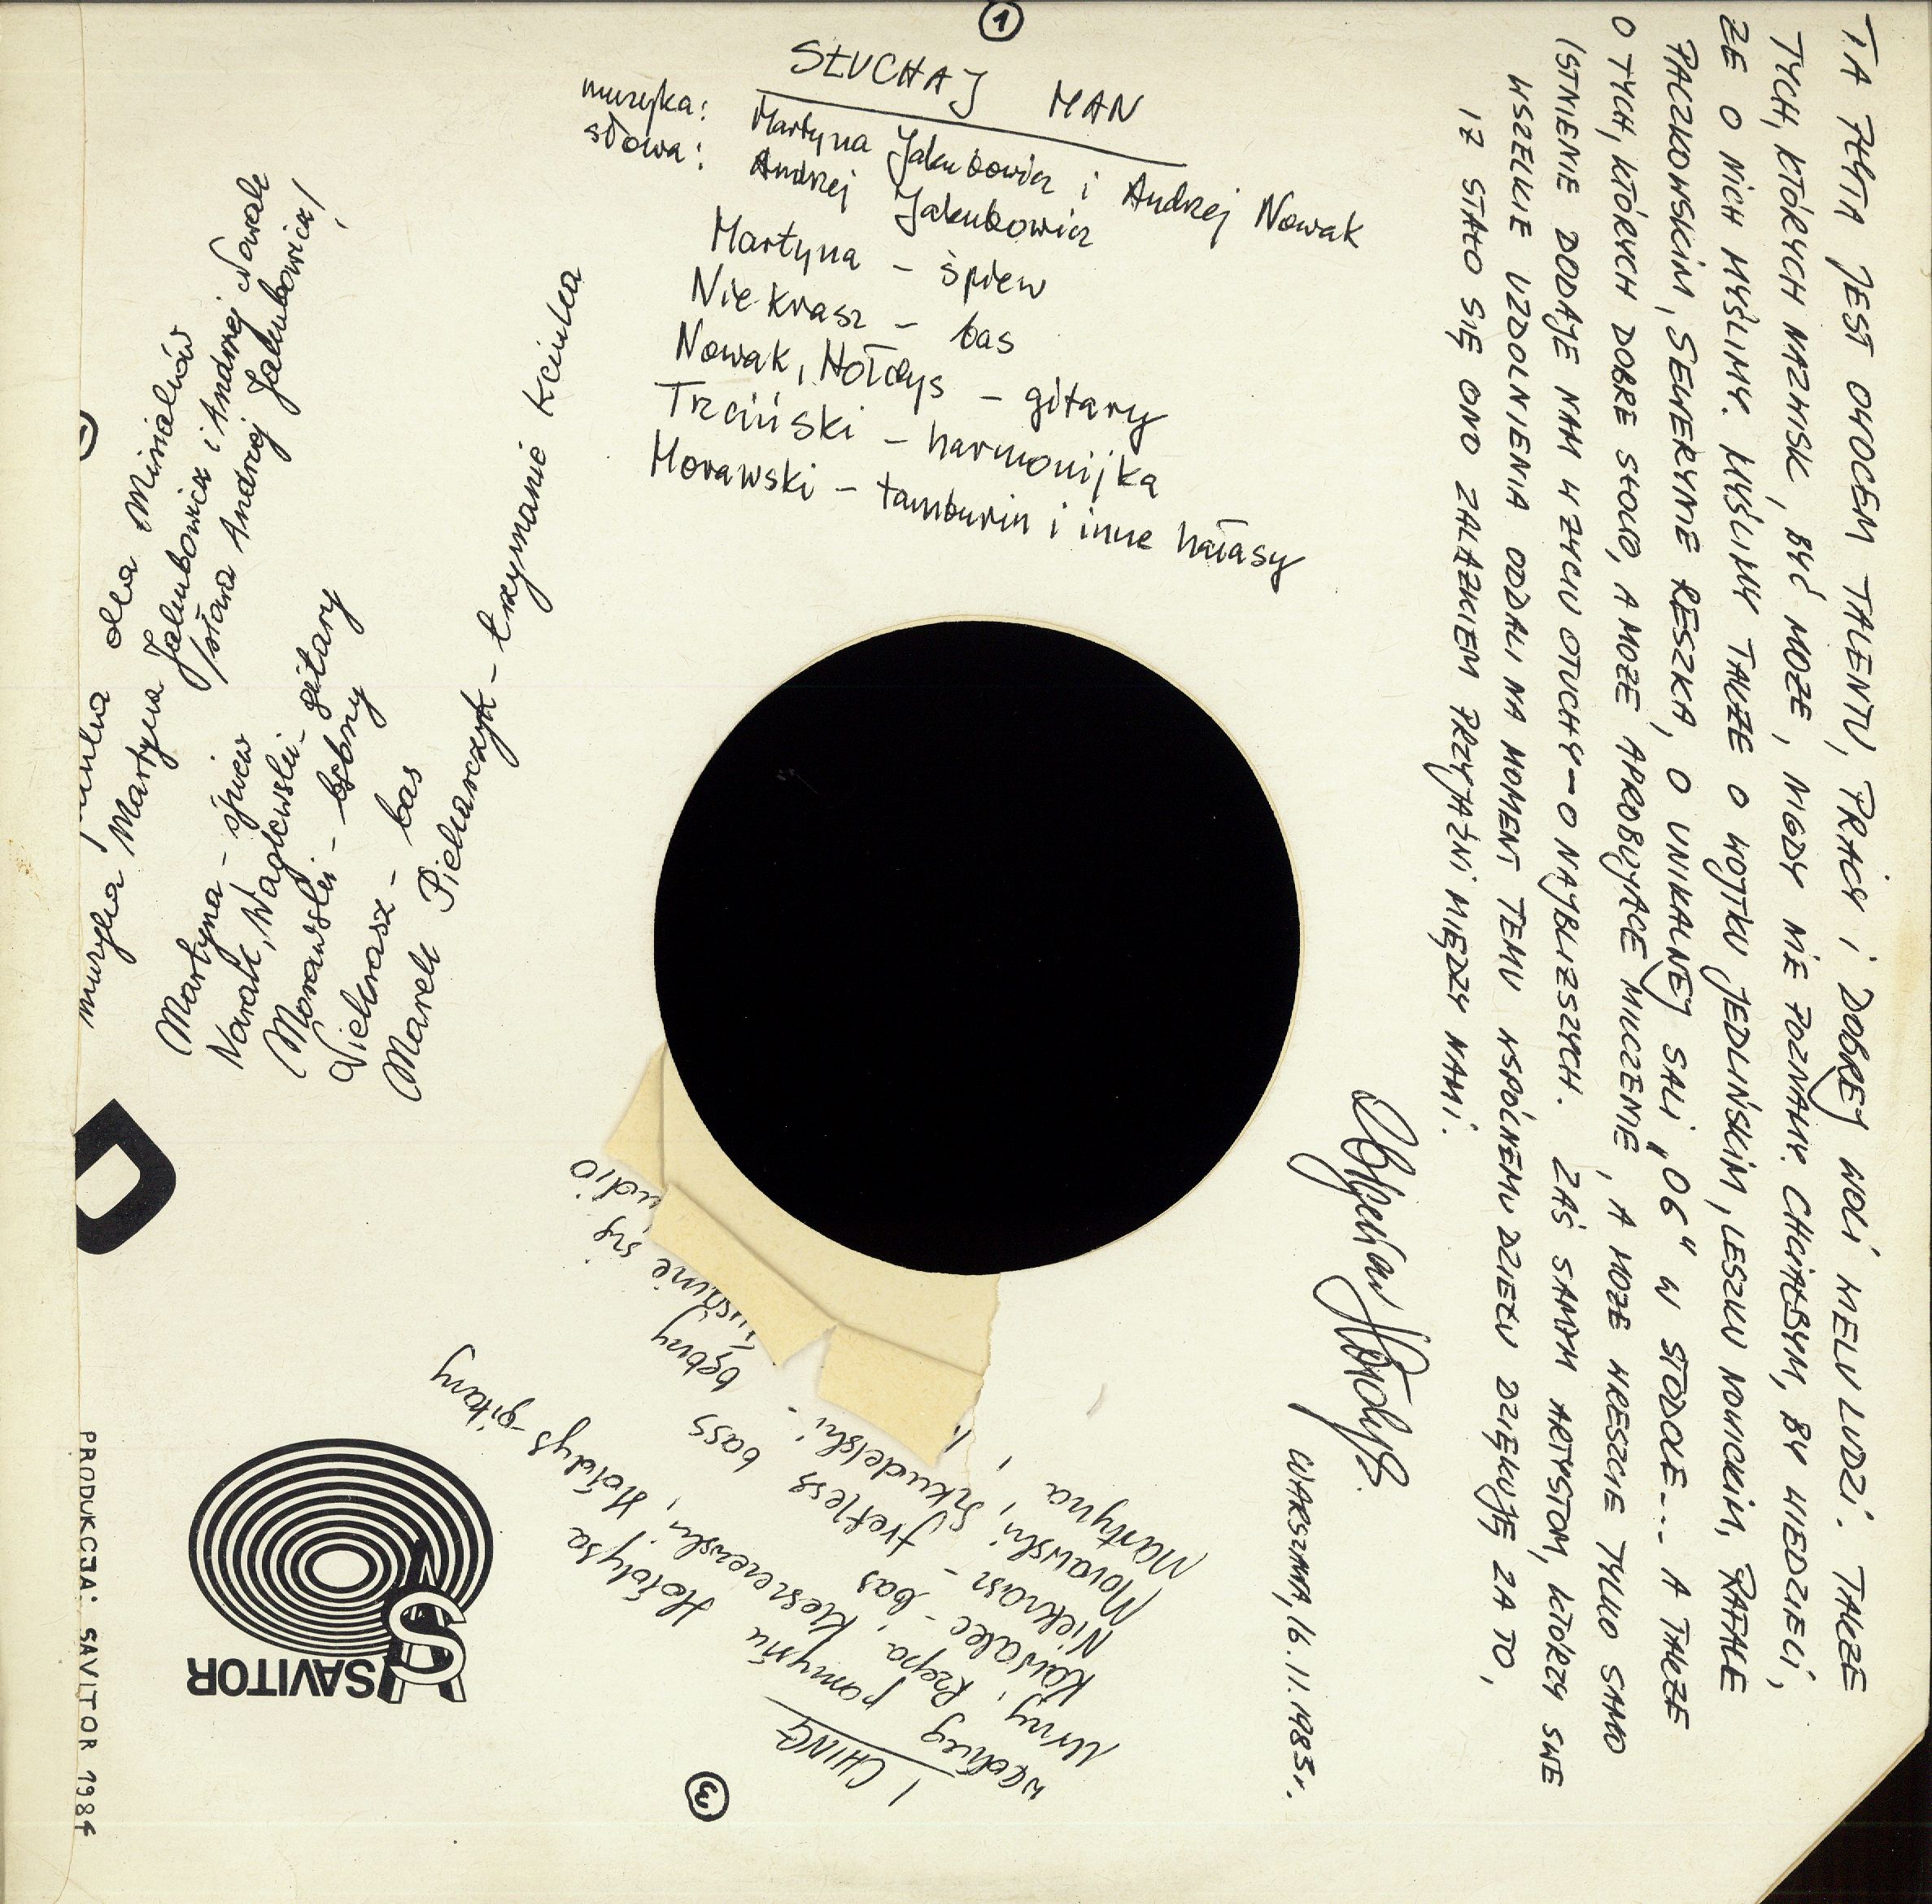 ①
SŁUCHAJ MAN
muzyka: Martyna Jakubowicz i Andrzej Nowak
słowa: Andrzej Jakubowicz
Martyna – śpiew
Niekrasz – bas
Nowak, Hołdys – gitary
Trciński – harmonijka
Morawski – tamburin i inne hałasy
TA PŁYTA JEST OWOCEM TALENTU, PRACY I DOBREJ WOLI WIELU LUDZI. TAKŻE
TYCH, KTÓRYCH NAZWISK, BYĆ MOŻE, NIGDY NIE POZNAMY. CHCIAŁBYM, BY WIEDZIELI,
ŻE O NICH MYŚLIMY. MYŚLIMY TAKŻE O WOJTKU JEDLIŃSKIM, LESZKU NOWICKIM, RAFALE
PACZKOWSKIM, SEWERYNIE RESZKA, O UNIKALNEJ SALI „06" W STODOLE... A TAKŻE
O TYCH, KTÓRYCH DOBRE SŁOWO, A MOŻE APROBUJĄCE MILCZENIE, A MOŻE WRESZCIE TYLKO SAMO
ISTNIENIE DODAJE NAM W ŻYCIU OTUCHY – O NAJBLIŻSZYCH. ZAŚ SAMYM ARTYSTOM, KTÓRZY SWE
WSZELKIE UZDOLNIENIA ODDALI NA MOMENT TEMU WSPÓLNEMU DZIEŁU DZIĘKUJĘ ZA TO,
IŻ STAŁO SIĘ ONO ZALĄŻKIEM PRZYJAŹNI MIĘDZY NAMI.
Zbigniew Hołdys.
WARSZAWA, 16.11.1983 r.
dla Misiaków
muzyka Martyna Jakubowicz i Andrzej Nowak
/słowa Andrzej Jakubowicz/
Martyna – śpiew
Nowak, Waglewski – gitary
Morawski – bębny
Niekrasz – bas
Marek Piekarczyk – trzymanie kciuka
③
I CHING
według pomysłu Hołdysa
Mrny, Rzepa, Kleszczewski, Hołdys – gitary
Kawalec – bas
Niekrasz – fretless bass
Morawski, Szkudelski – bębny
Martyna,
SAVITOR
S
PRODUKCJA: SAVITOR 1984